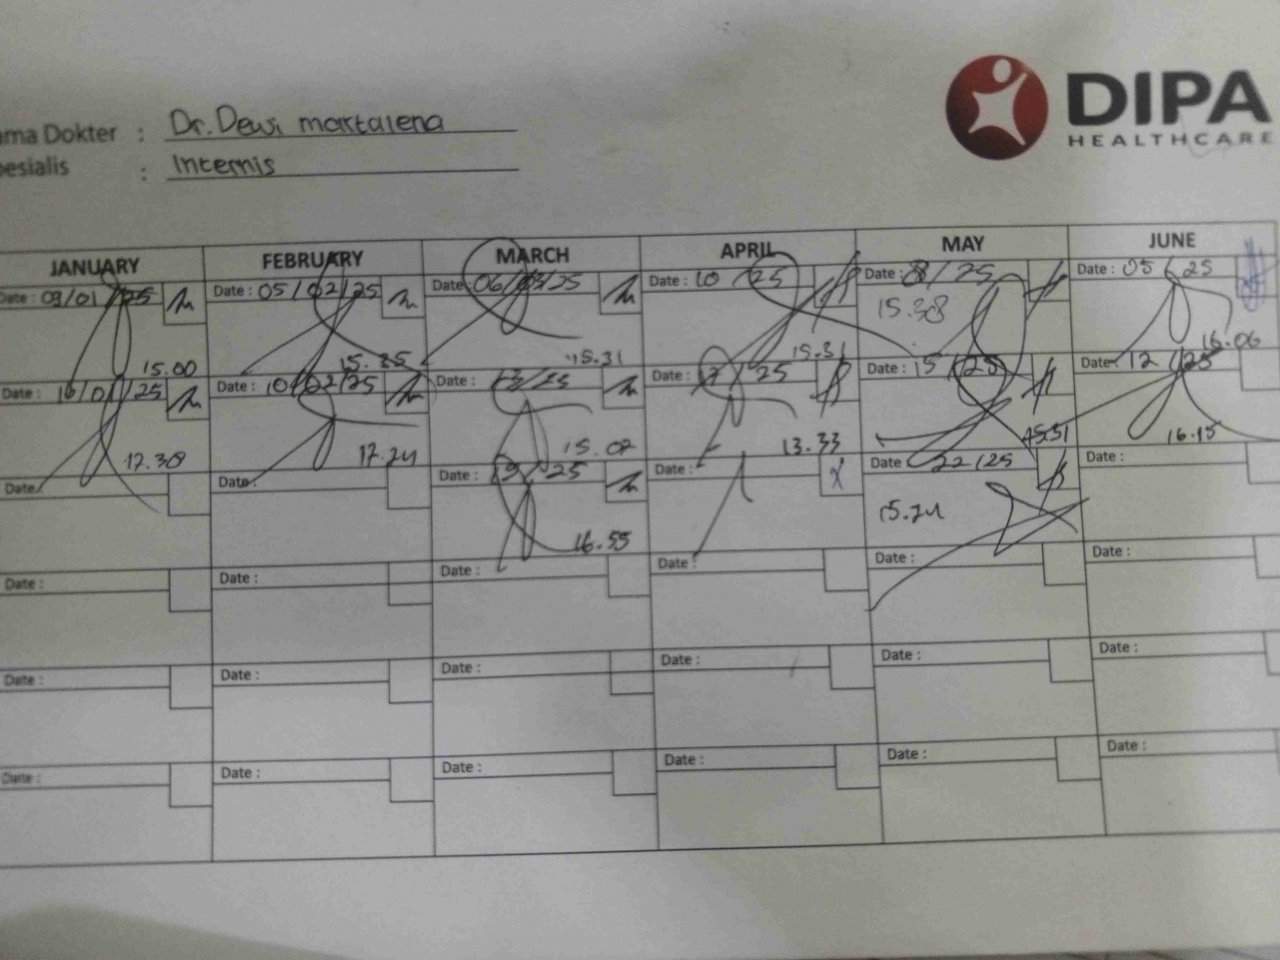 DIPA
HEALTHCARE
ama Dokter : Dr. Dewi martalena
pesialis : Internis
JANUARY FEBRUARY MARCH APRIL MAY JUNE
Date : 09/01/25 Date : 05/02/25 Date : 06/03/25 Date : 10 /25 Date : 8/25 Date : 05/25
15.00 15.31 15.31 16.06
Date : 16/01/25 Date : 10/02/25 Date : /25 Date : /25 Date : 15/25 Date : 12/25
17.24 15.02 13.33 16.15
Date Date : Date : 19/25 Date : Date : 22/25 Date :
16.55 15.24
Date : Date : Date : Date : Date : Date :
Date : Date : Date : Date : Date : Date :
Date : Date : Date : Date : Date : Date :